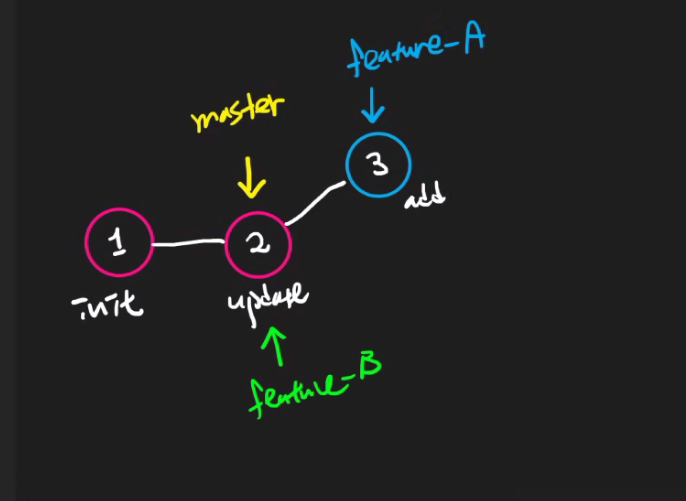 feature-A
master
3
add
1
2
init
update
feature-B